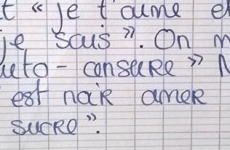 t « je t'aime et
je sais ». On m
uto - censure » N
est noir amer
sucre ».